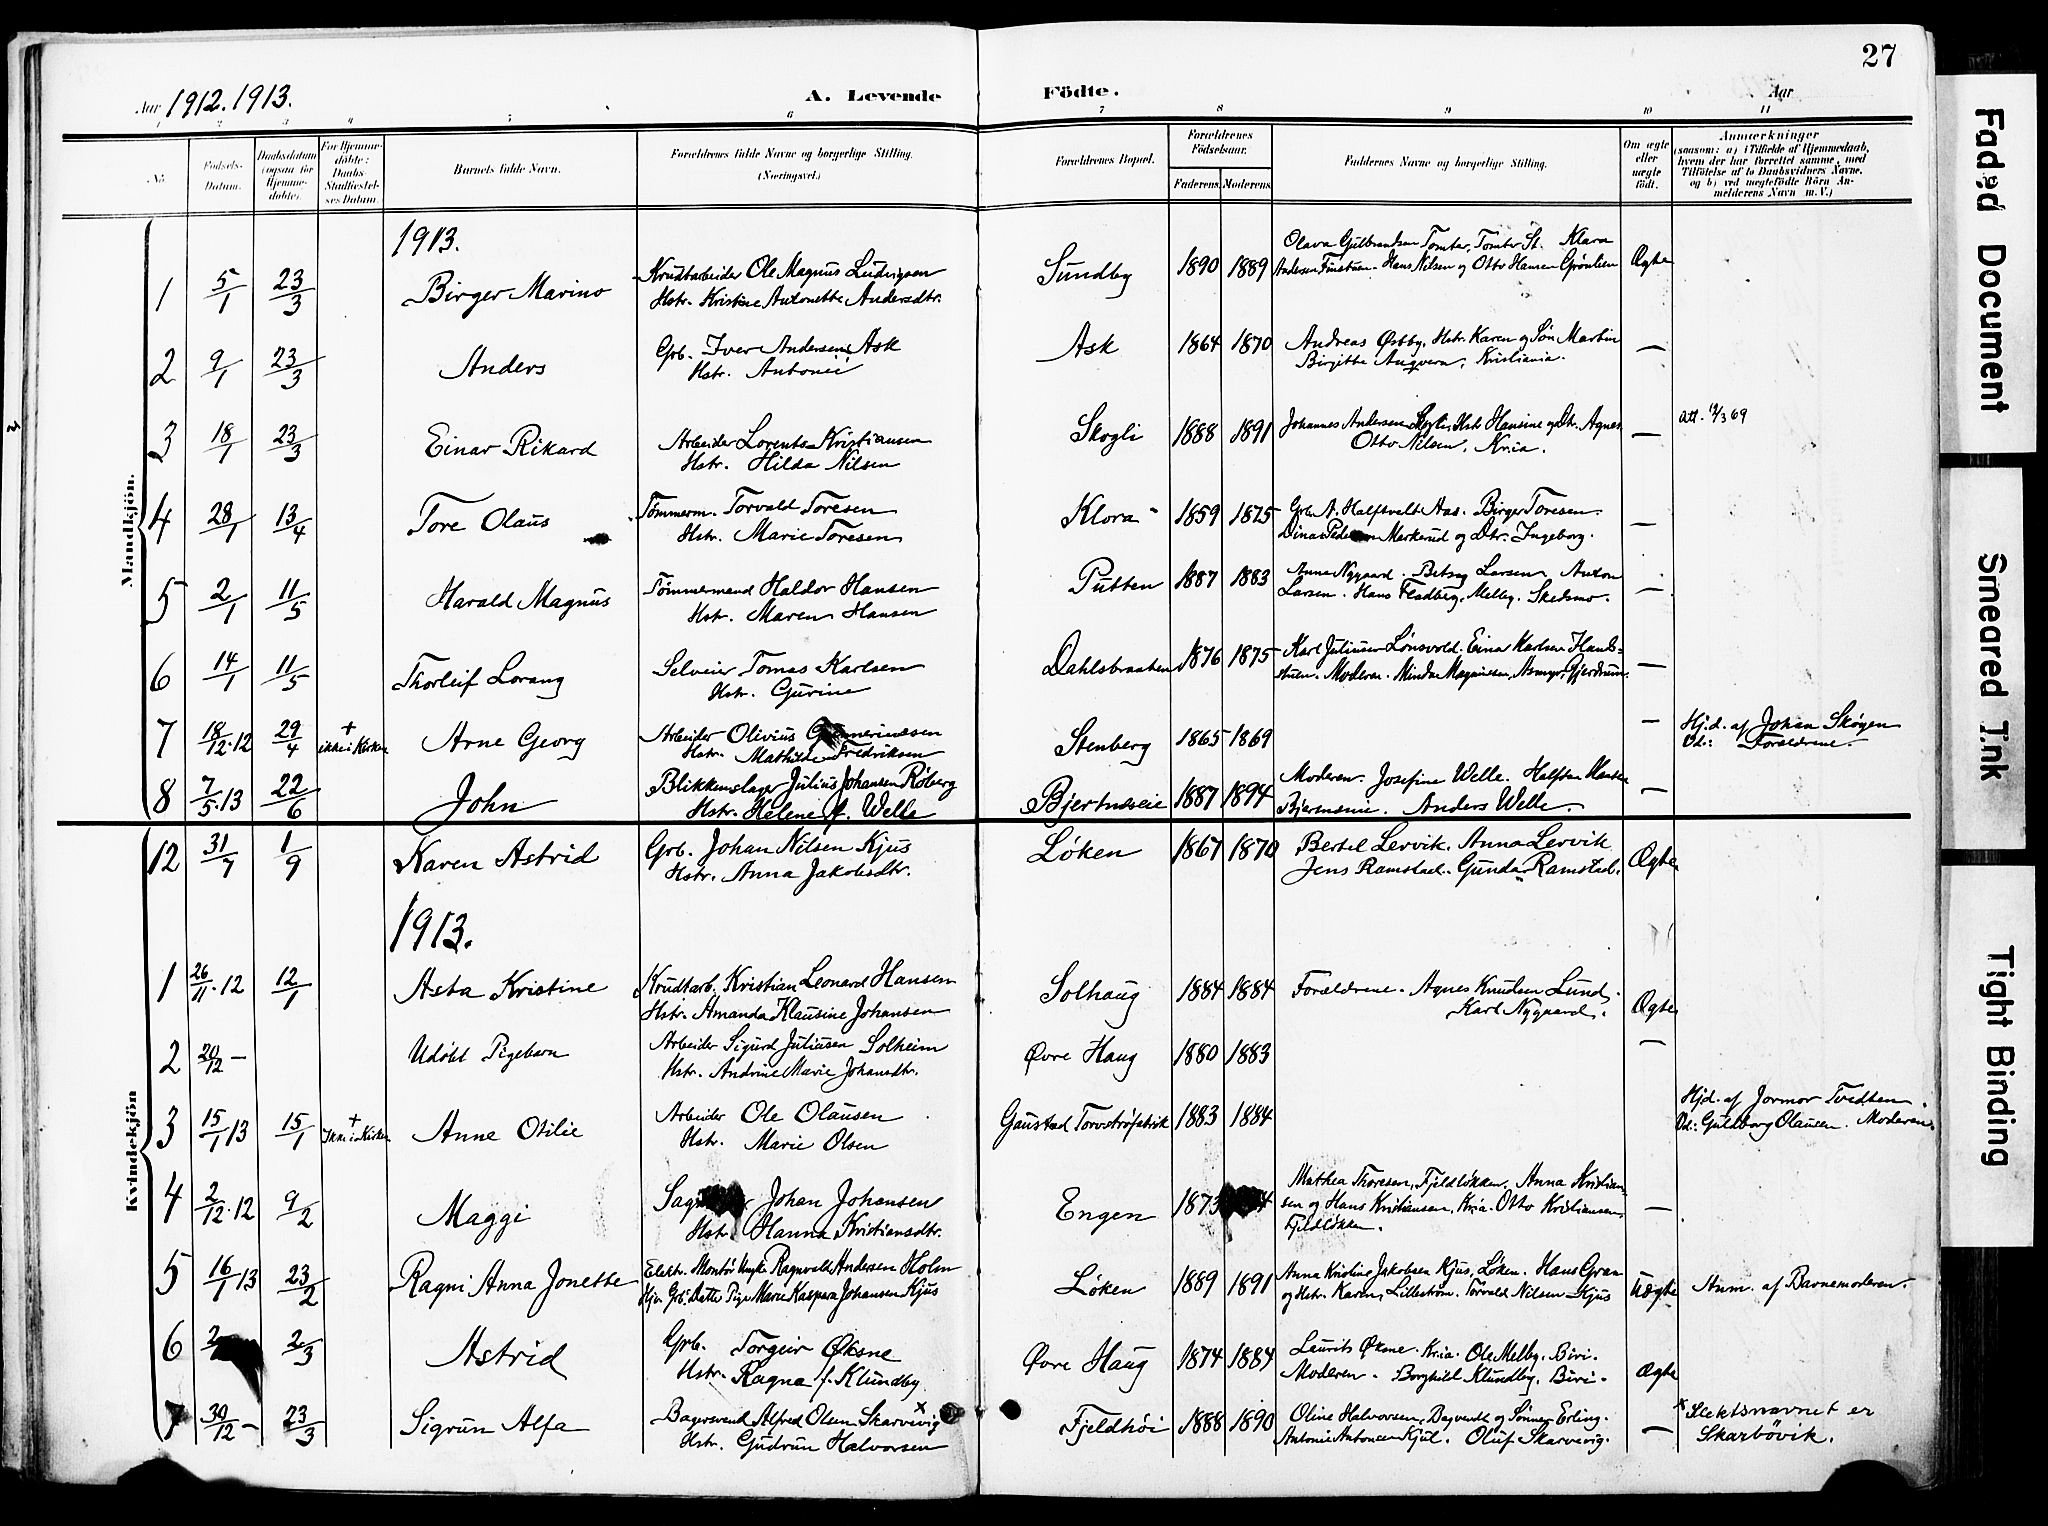 27
Aar 1912. 1913.
A. Levende Födte.
Aar
1 2 3 4 5 6 7 8 9 10 11
No
Födsels-Datum.
Daabsdatum (ogsaa for Hjemmedöbte).
For Hjemmedöbte: Daabs-Stadfæstelses Datum.
Barnets fulde Navn.
Forældrenes fulde Navne og borgerlige Stilling.
(Næringsvei.)
Forældrenes Bopæl.
Forældrenes Födselsaar.
Faderens. Moderens.
Faddernes Navne og borgerlige Stilling.
Om ægte eller uægte født.
Anmærkninger
(saasom: a) i Tilfælde af Hjemmedaab,
hvem der har forrettet samme, med
Tilföielse af to Daabsvidners Navne.
og b) ved uægtefödte Börn An-
melderens Navn m. V.)
Mandkjön.
1913.
1 5/1 23/3 Birger Marino Krudtarbeider Ole Magnus Ludvigsen
Hstr. Kristine Antonette Andersdtr.
Sundby 1890 1889 Olava Gulbrandsen Tomter, Tomter St. Klara
Andersen Finstuen. Hans Nilsen og Otto Hansen Grönlien Ægte
2 9/1 23/3 Anders Grb. Iver Andersen Ask
Hstr. Antonie
Ask 1864 1870 Andreas Østby, Hstr. Karen og Søn Martin
Birgitte Angvern, Kristiania. —
3 18/1 23/3 Einar Rikard Arbeider Lorents Kristiansen
Hstr. Hilda Nilsen
Skogli 1888 1891 Johannes Andersen Skogli, Hstr Hansine og Dtr. Agnes
Otto Nilsen, Kria. —
Att. 12/3 69
4 28/1 13/4 Tore Olaus Tömmerm. Torvald Toresen
Hstr. Marie Toresen
Klora 1859 1875 Grb. A. Halftvelt Aas. Birger Toresen.
Dina Markerud og Dtr. Ingeborg. —
5 2/1 11/5 Harald Magnus Tömmermand Haldor Hansen
Hstr. Maren Hansen
Putten 1887 1883 Anna Nygaard. Betsy Larsen, Anton
Larsen. Hans Fladberg, Melby. Skedsmo. —
6 14/1 11/5 Thorleif Lorang Selveier Tomas Karlsen
Hstr. Gurine
Dahlsbraaten 1876 1875 Karl Juliusen Lönsvold. Eina Karlsen Hands-
stuen. Moderen. Minda Magnussen, Asmyr, Gjerdrum. —
7 18/12.12 29/4 + ikke i Kirken Arne Georg Arbeider Olivius
Hstr. Mathilde Fredriksen
Stenberg 1865 1869 —
Hjd. af Johan Skögen
Vd.: Forældrene.
8 7/5.13 22/6 John Blikkenslager Julius Johansen Röberg
Hstr. Helene f. Welle
Bjertnæseie 1887 1894 Moderen. Josefine Welle. Halften Hansen
Anders Welle. —
Kvindekjön
12 31/7 1/9 Karen Astrid Grb. Johan Nilsen Kjus
Hstr. Anna Jakobsdtr.
Løken 1867 1870 Bertel Lervik. Anna Lervik
Jens Ramstad. Gunda Ramstad. Ægte
1913.
1 26/11.12 12/1 Asta Kristine Krudtarb. Kristian Leonard Hansen
Hstr. Amanda Klausine Johansen
Solhaug 1884 1884 Forældrene. Agnes Knudsen Lund,
Karl Nygaard. Ægte
2 20/12 — Udöbt Pigebarn Arbeider Sigurd Juliusen Solheim
Hstr. Andrine Marie Johansdtr.
Øvre Haug 1880 1883 —
3 15/1 13 15/1 + Ikke i Kirken Anne Otilie Arbeider Ole Olausen
Hstr. Marie Olsen
Gaustad Torvströfabrik 1883 1884
Hjd. af Jormor Tvedten.
Vd.: Guldborg Olausen. Moderen.
4 2/12.12 9/2 Maggi Johan Johansen
Hstr. Hanna Kristiansdtr.
Engen 1873 Mathea Thoresen, Fjeldlökken, Anna Kristian-
sen og Hans Kristiansen, Kria. Otto Kristiansen,
Fjeldlökken. —
5 16/1 13 23/2 Ragni Anna Jonette Elektr. Montör Ragnvald Andersen Holm
Grb. Datter Pige Marie Kaspara Johansen Kjus
Løken 1889 1891 Anna Kristine Jakobsen Kjus, Løken. Hans Gran
og Hstr. Karen, Lilleström. Torvald Nilsen Kjus Uægte
Anm. af Barnemoderen.
6 2/3 Astrid Grb. Torgeir Øksne
Hstr. Ragna f. Klundby
Øvre Haug 1874 1884 Laurits Öksne. Kria. Ole Melby, Biri.
Moderen. Borghild Klundby, Biri. Ægte
7 30/12 — 23/3 Sigrun Alfa Bagersvend Alfred Olsen Skarvevig x
Hstr. Gudrun Halvorsen
Fjeldhöi 1888 1890 Oline Halvorsen, og Sönner Erling.
Antonie Antonsen Kjul. Oluf Skarvevig. —
x Slektsnavnet er
Skarbövik.
Faded Document
Smeared Ink
Tight Binding